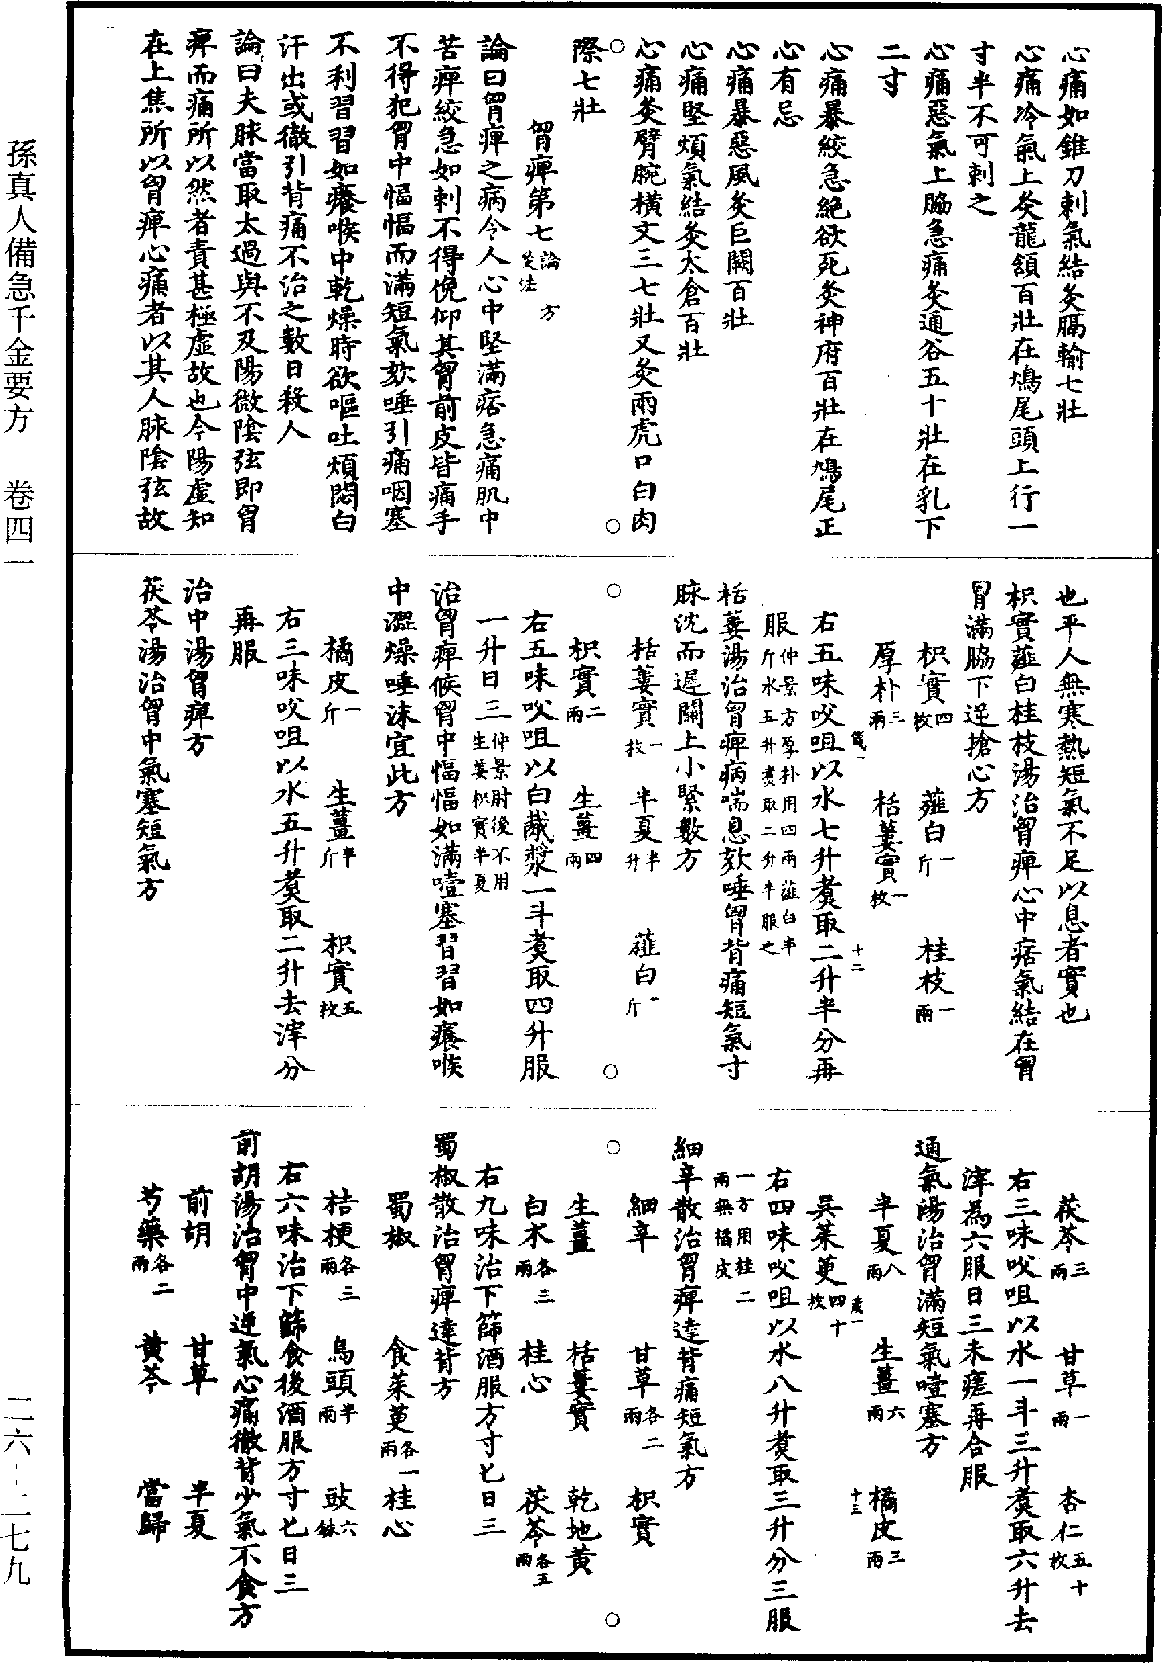 心痛如錐刀刺氣結灸膈輸七壯
心痛冷氣上灸龍頷百壯在鳩尾頭上行一
寸半不可刺之
心痛惡氣上脇急痛灸通谷五十壯在乳下
二寸
心痛暴絞急絕欲死灸神府百壯在鳩尾正
心有忌
心痛暴惡風灸巨闕百壯
心痛堅煩氣結灸太倉百壯
心痛灸臂腕橫文三七壯又灸兩虎口白肉
際七壯
胷痺第七論一方
灸法
論曰胷痺之病令人心中堅滿痞急痛肌中
苦痺絞急如刺不得俛仰其胷前皮皆痛手
不得犯胷中愊愊而滿短氣欬唾引痛咽塞
不利習習如癢喉中乾燥時欲嘔吐煩悶白
汗出或徹引背痛不治之數日殺人
論曰夫脉當取太過與不及陽微陰弦即胷
痺而痛所以然者責其極虛故也今陽虛知
在上焦所以胷痺心痛者以其人脉陰弦故
也平人無寒熱短氣不足以息者實也
枳實薤白桂枝湯治胷痺心中痞氣結在胷
胷滿脇下逆搶心方
枳實四枚 薤白一斤 桂枝一兩
厚朴三兩 栝蔞實一枚
右五味㕮咀以水七升煑取二升半分再
服仲景方厚朴用四兩薤白半
斤水五升煑取二升半服之
栝蔞湯治胷痺病喘息欬唾胷背痛短氣寸
脉沈而遲關上小緊數方
栝蔞實一枚 半夏半升 薤白一斤
枳實二兩 生薑四兩
右五味㕮咀以白酨漿一斗煑取四升服
一升日三仲景肘後不用
生薑枳實半夏
治胷痺候胷中愊愊如滿噎塞習習如癢喉
中澀燥唾沫宜此方
橘皮一斤 生薑半斤 枳實五枚
右三味㕮咀以水五升煑取二升去滓分
再服
治中湯胷痺方
茯苓湯治胷中氣塞短氣方
茯苓三兩 甘草一兩 杏仁五十枚
右三味㕮咀以水一斗三升煑取六升去
滓為六服日三未瘥再合服
通氣湯治胷滿短氣噎塞方
半夏八兩 生薑六兩 橘皮三兩
吳茱萸四十枚
右四味㕮咀以水八升煑取三升分三服
一方用桂二
兩無橘皮
細辛散治胷痺達背痛短氣方
細辛 甘草各二兩 枳實
生薑 栝蔞實 乾地黃
白术各三兩 桂心 茯苓各五兩
右九味治下篩酒服方寸匕日三
蜀椒散治胷痺達背方
蜀椒 食茱萸各一兩 桂心
桔梗各三兩 烏頭半兩 豉六銖
右六味治下篩食後酒服方寸匕日三
前胡湯治胷中逆氣心痛徹背少氣不食方
前胡 甘草 半夏
芍藥各二兩 黃芩 當歸
孫真人備急千金要方 卷四一
二六-二七九